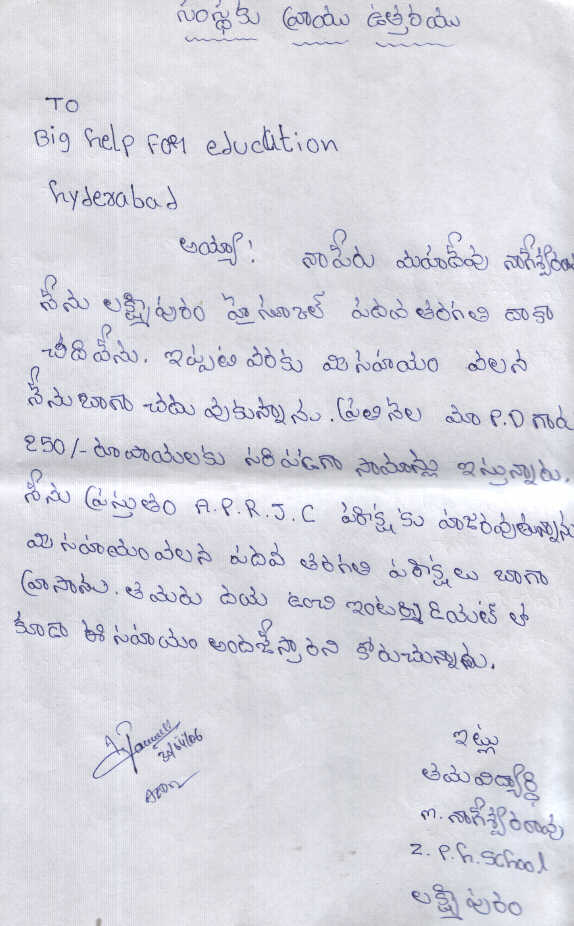 సంస్థకు వ్రాయు ఉత్తరము
TO
Big help FOR education
hyderabad
అయ్యా! నా పేరు మహదేవు నాగేశ్వరరావు
నేను లక్ష్మీపురం హైస్కూల్ పదవ తరగతి దాకా
చదివేను. ఇప్పటి వరకు మీ సహాయం వలన
నేను బాగా చదువుకున్నాను. ప్రతి నెల మా P.D గారు
250/- రూపాయలకు సరిపడగా సామాన్లు ఇస్తున్నారు.
నేను ప్రస్తుతం A.P.R.J.C పరీక్షకు హాజరవుతున్నాను
మీ సహాయం వలన పదవ తరగతి పరీక్షలు బాగా
వ్రాసాను. తమరు దయ ఉంచి ఇంటర్మీడియట్ లో
కూడా ఈ సహాయం అందజేస్తారని కోరుచున్నాను.
ఇట్లు
తమ విద్యార్థి
m. నాగేశ్వరరావు
Z. P. h. School
లక్ష్మీపురం